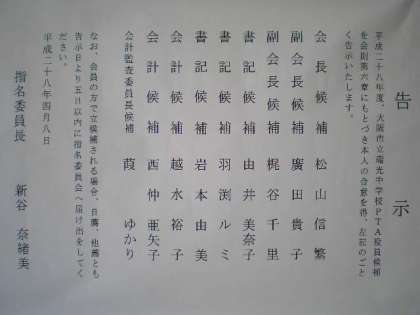 告示
平成二十八年度、大阪市立瑞光中学校PTA役員候補
を会則第六章にもとづき本人の合意を得、左記のごと
く告示いたします。
会長候補 松山信繁
副会長候補 廣田貴子
副会長候補 梶谷千里
書記候補 由井美奈子
書記候補 羽渕ルミ
書記候補 岩本由美
会計候補 越水裕子
会計候補 西仲亜矢子
会計監査委員長候補 葭ゆかり
なお、会員の方で立候補される場合、自薦、他薦とも
告示日より五日以内に指名委員会へ届け出をしてく
ださい。
平成二十八年四月八日
指名委員長 新谷奈緒美